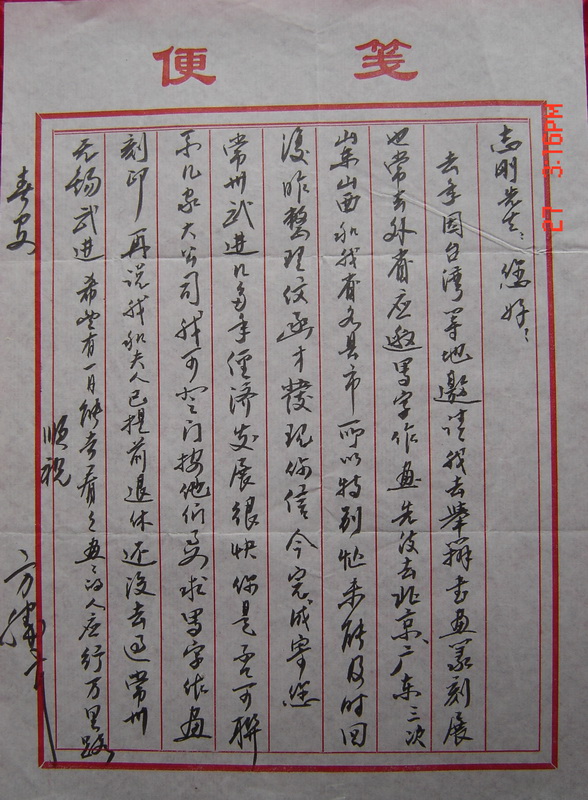 便 笺
志刚先生：您好：
去年因台湾等地邀请我去举办书画篆刻展
也常去外省应邀写字作画 先后去北京、广东三次
山东山西和我省各县市 所以特别忙 未能及时回
复 昨整理信函才发现你信 今完成寄您
常州武进几多年经济发展很快 你是否可联
系几家大公司 我可登门按他们要求写字作画
刻印 再说我和夫人已提前退休 还没去过常州
无锡武进 希望有一日能去看看 画画的人应行万里路
顺祝
春安
27 3:16PM